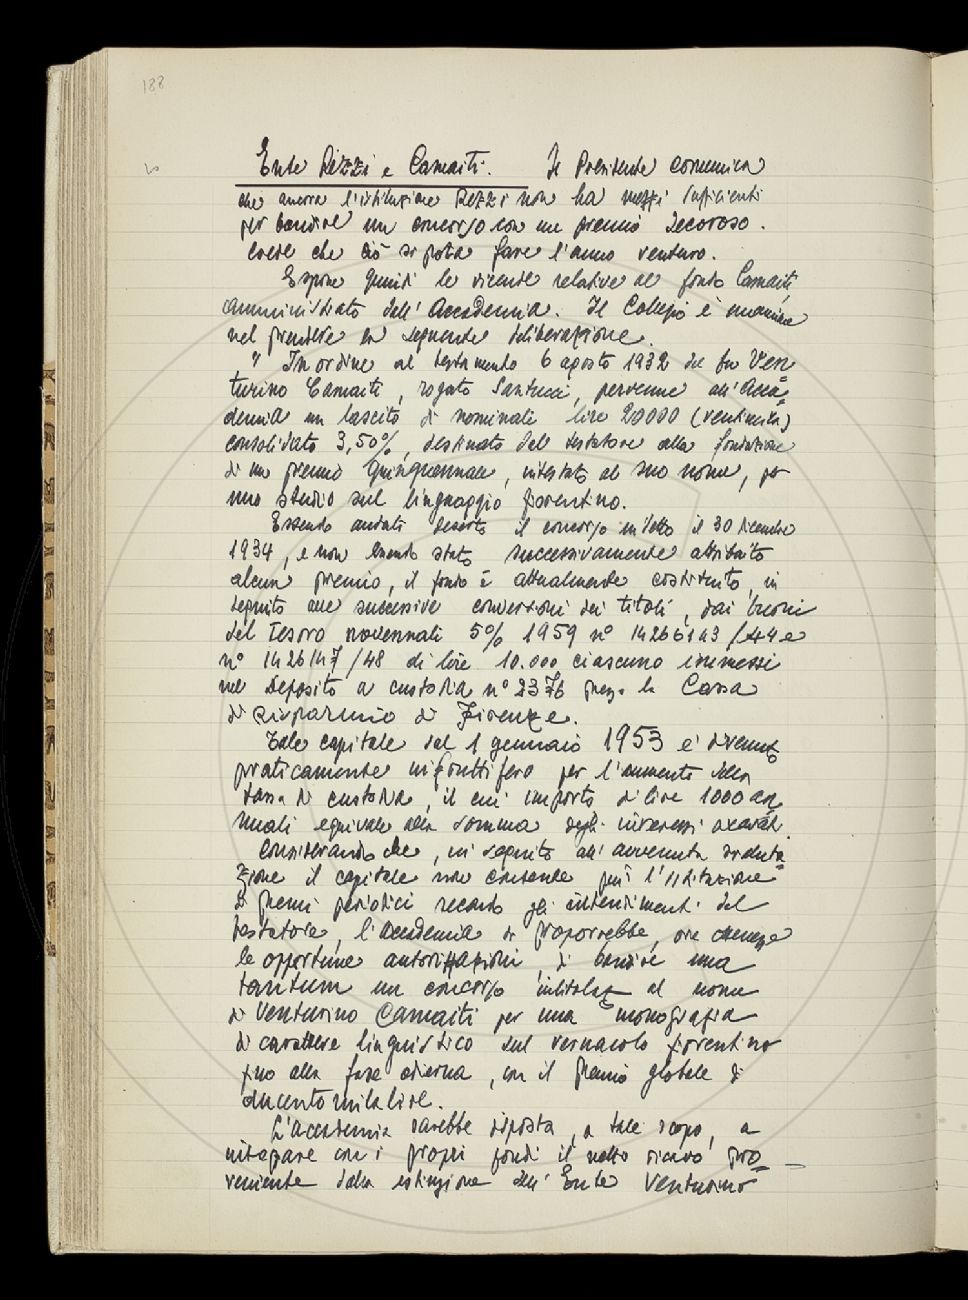 188
Ente Rezzi e Camaiti. Il Presidente comunica
che ancora l'istituzione Rezzi non ha mezzi sufficienti
per bandire un concorso con un premio decoroso.
Crede che ciò si potrà fare l'anno venturo.
Espone quindi le vicende relative al fondo Camaiti,
amministrato dall'Accademia. Il Collegio è unanime
nel prendere la seguente deliberazione.
" In ordine al testamento 6 agosto 1932 del fu Ven=
turino Camaiti, rogato Santucci, pervenne all'Acca=
demia un lascito di nominali lire 20000 (ventimila)
consolidato 3,50%, destinato dal testatore alla fondazione
di un premio quinquennale, intestato al suo nome, per
uno studio sul linguaggio fiorentino.
Essendo andato deserto il concorso indetto il 30 dicembre
1934, e non essendo stato successivamente attribuito
alcun premio, il fondo è attualmente costituito, in
seguito alle successive conversioni dei titoli, dai buoni
del Tesoro novennali 5% 1959 n° 1426143/44 e
n° 1426147/48 di lire 10.000 ciascuno immessi
nel deposito a custodia n° 2376 presso la Cassa
di Risparmio di Firenze.
Tale capitale dal 1 gennaio 1953 è divenuto
praticamente infruttifero per l'aumento della
tassa di custodia, il cui importo di lire 1000 an
nuali equivale alla somma degli interessi
Considerando che, in seguito all'avvenuta svaluta=
zione il capitale non consente più l'istituzione
di premi periodici secondo gli intendimenti del
testatore, l'Accademia si proporrebbe, ove
le opportune autorizzazioni, di bandire una
tantum un concorso intitolato al nome
di Venturino Camaiti per una monografia
di carattere linguistico sul vernacolo fiorentino
fino alla fase odierna, con il premio globale di
duecentomila lire.
L'Accademia sarebbe disposta, a tale scopo, a
integrare con i propri fondi il netto ricavo pro=
veniente dalla estinzione dell'Ente Venturino